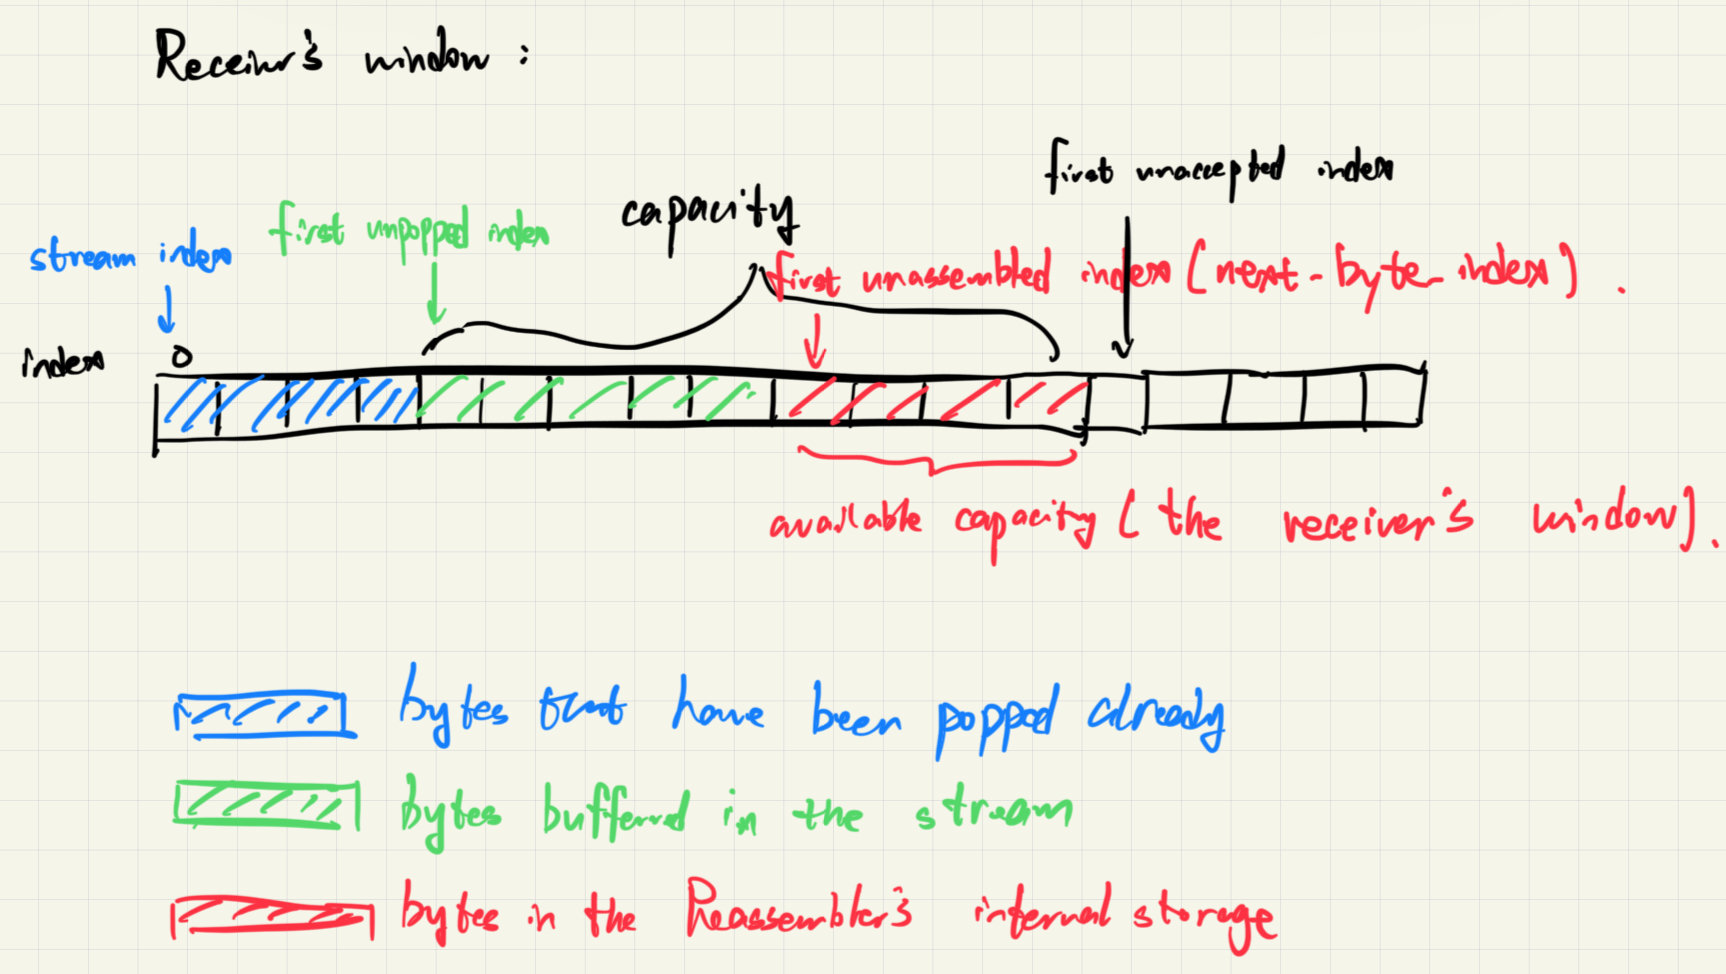 Receiver's window :
first unaccepted index
capacity
first unpopped index
stream index
first unassembled index (next-byte-index) .
index 0
available capacity (the receiver's window) .
bytes that have been popped already
bytes buffered in the stream
bytes in the Reassembler's internal storage